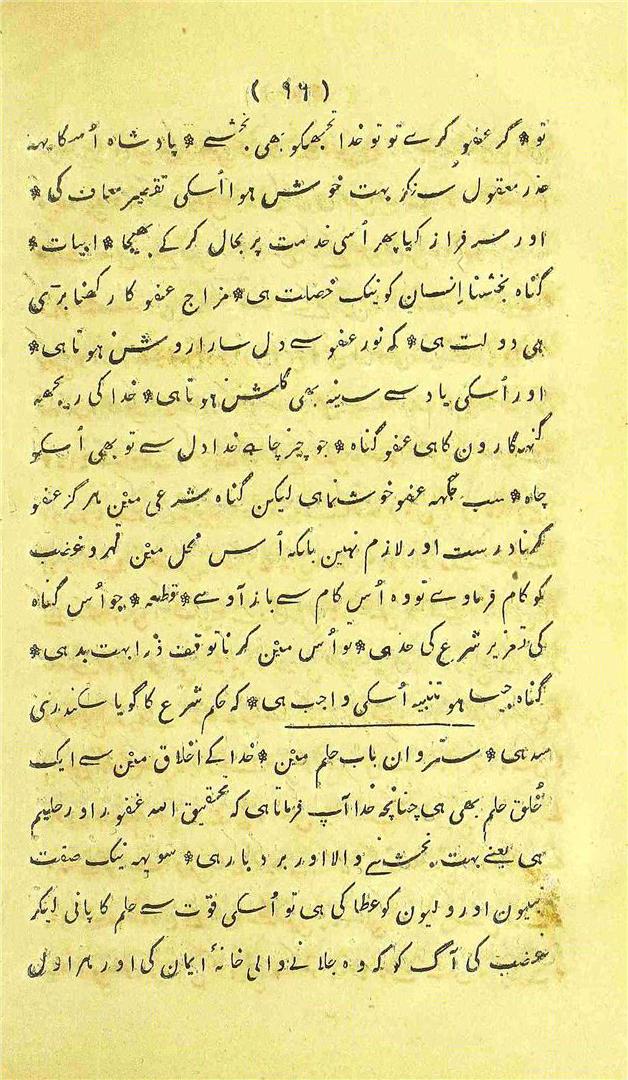 ( ۹۶ )
تو * گر عفو کرے تو تو خدا تجھکو بھی بخشے * پادشاہ اُسکا یہہ
عذر معقول سنکر بہت خوش ہوا اُسکی تقصیر معاف کی *
اور سرفراز کیا پھر اُسی خدمت پر بحال کرکے بھیجا * ابیات *
گناہ بخشنا انسان کو نیک خصلت ہی * مزاج عفو کا رکھنا بڑی
ہی دولت ہی * کہ نور عفو سے دل سارا روشن ہوتا ہی *
اور اُسکی یاد سے سینہ بھی گلشن ہوتا ہی * خدا کی ریجھہ
گنہگارون کا ہی عفو گناہ * جو چیز چاہے خدا دل سے تو بھی اُسکو
چاہ * سب جگہہ عفو خوشنما ہی لیکن گناہ شرعی مین ہرگز عفو
کرنا درست اور لازم نہین بلکہ اُس محل مین قہر و غضب
کو کام فرماوے تو وہ اُس کام سے باز آوے * قطعہ * جو اُس گناہ
کی تعزیر شرع کی حد ہی * تو اُس مین کرنا توقف ذرا بہت بد ہی *
گناہ جیسا ہو تنبیہ اُسکی واجب ہی * کہ حکم شرع کا گویا سکندری
سد ہی * سترواں باب حلم مین * خدا کے اخلاق مین سے ایک
خُلق حلم بھی ہی چنانچہ خدا آپ فرماتا ہی کہ تحقیق اللہ غفور اور حلیم
ہی یعنے بہت بخشنے والا اور بردبار ہی * سو یہہ نیک صفت
نبیون اور ولیون کو عطا کی ہی تو اُسکی قوّت سے حلم کا پانی لیکر
غضب کی آگ کو کہ وہ جلانے والی خانۂ ایمان کی اور ہر اول